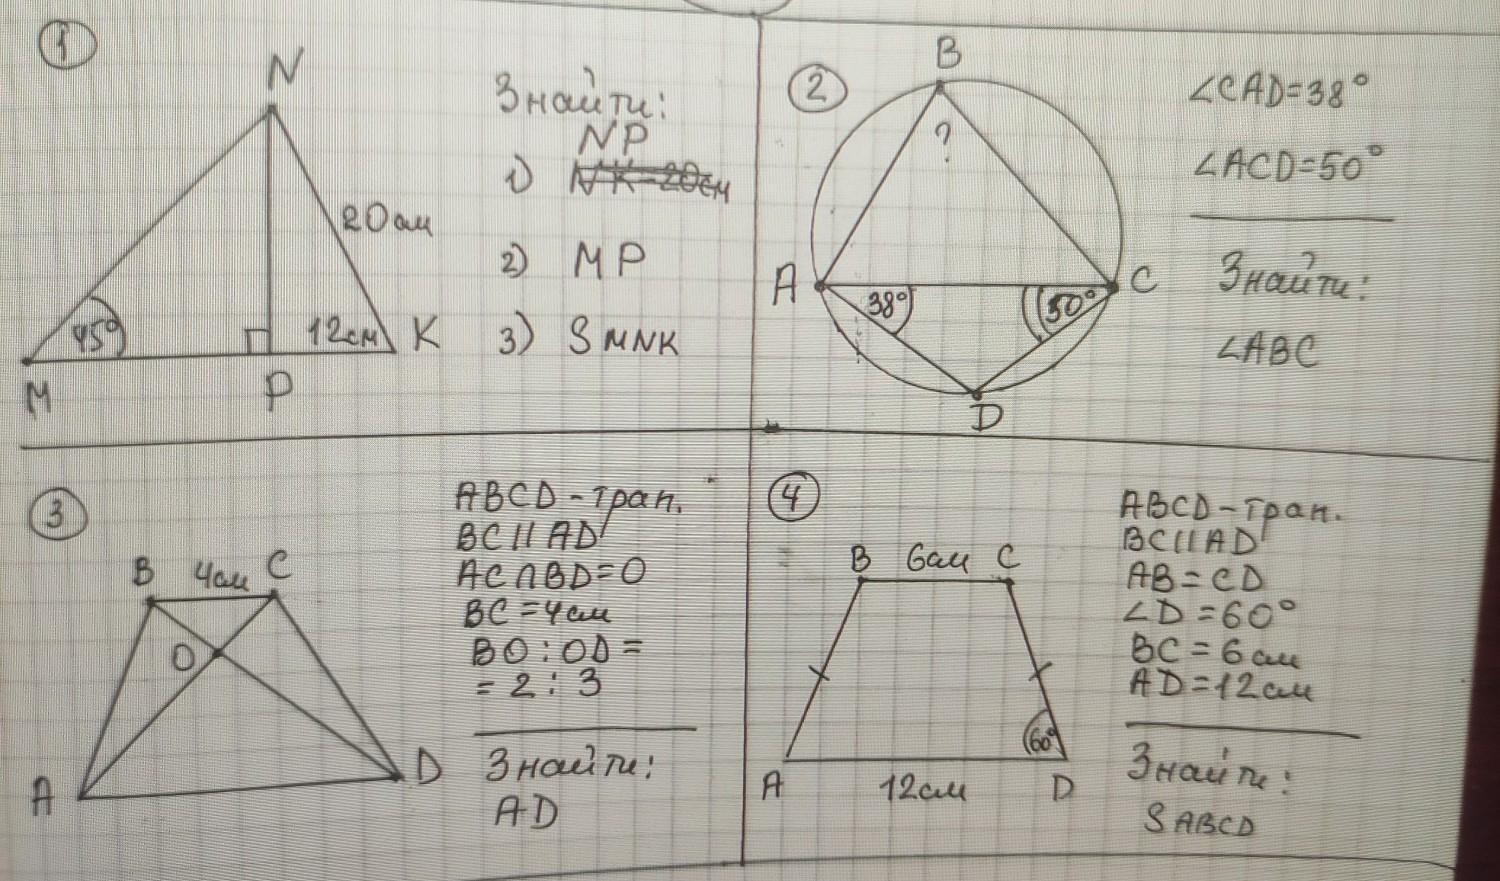 1
N
M
P
K
45°
12см
20см
Знайти:
NP
1) NK=20см
2) MP
3) S MNK
2
B
?
A
C
D
38°
50°
∠CAD=38°
∠ACD=50°
Знайти:
∠ABC
3
B 4см C
O
A
D
ABCD-трап.
BC||AD
AC∩BD=O
BC=4см
BO:OD=
=2:3
Знайти:
AD
4
B 6см C
60°
A 12см D
ABCD-трап.
BC||AD
AB=CD
∠D=60°
BC=6см
AD=12см
Знайти:
S ABCD